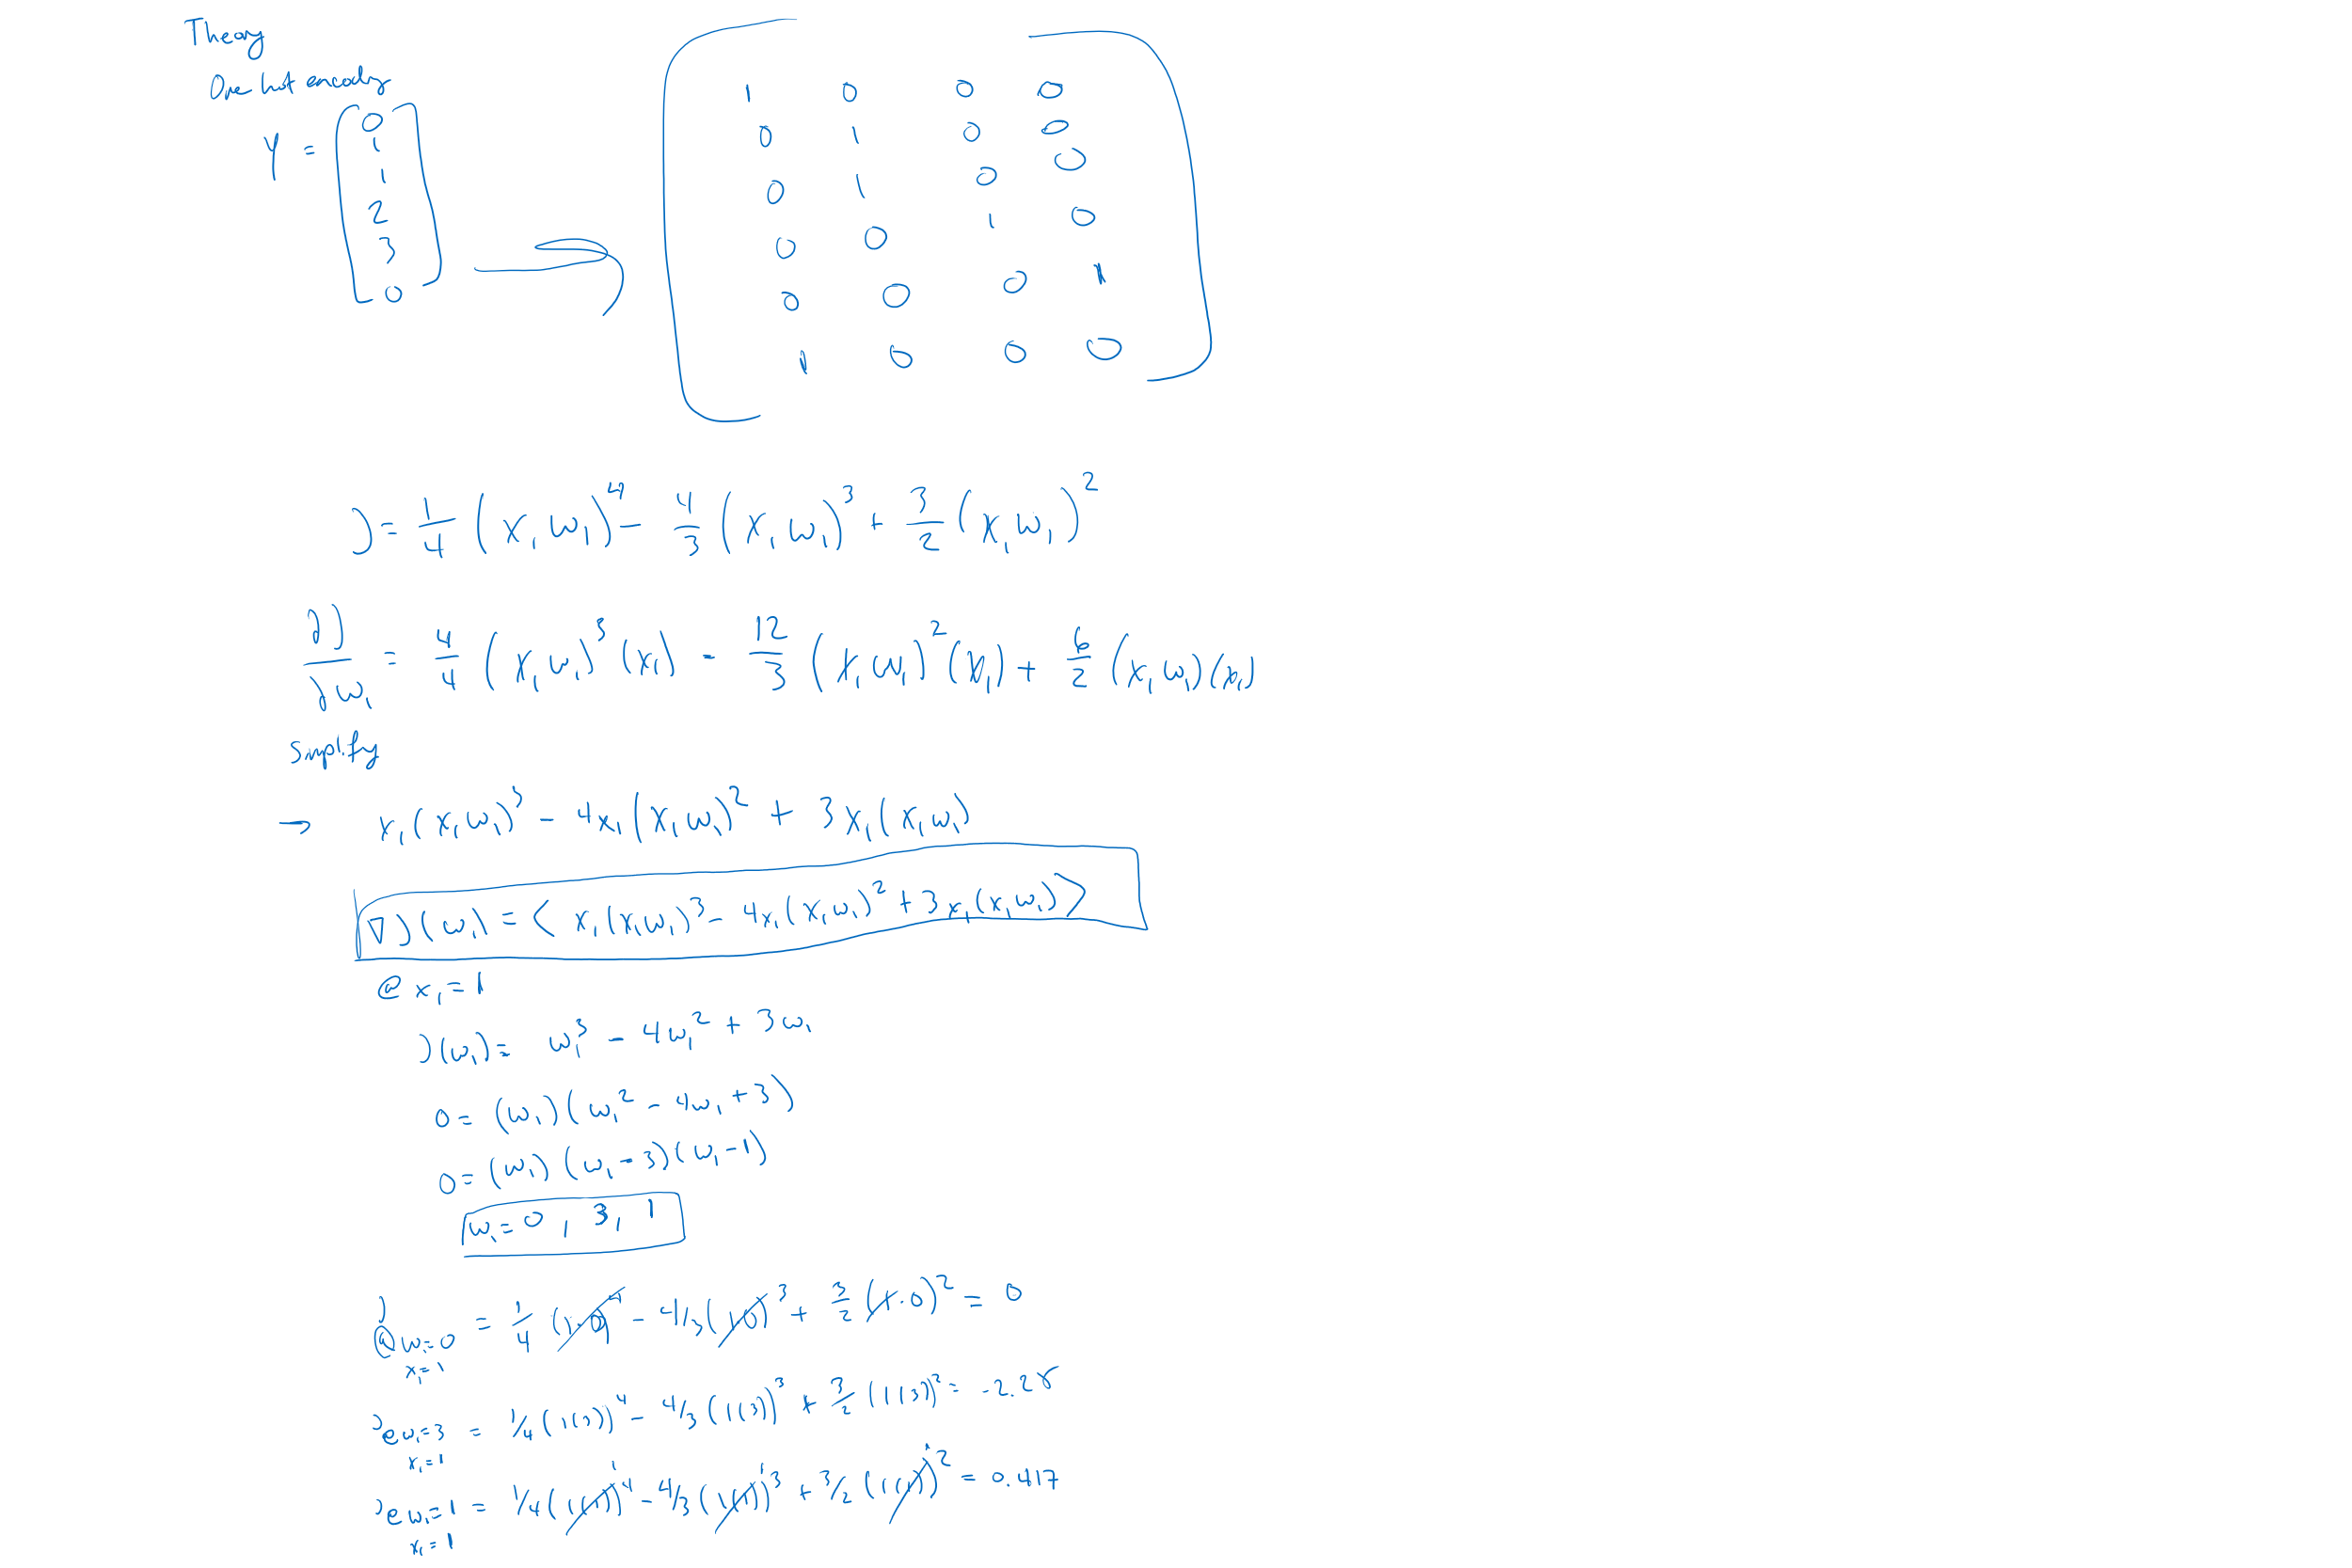 Theory
One hot encode
Y = [0 1 1 2 3 0] → [1 0 0 0
0 1 0 0
0 1 0 0
0 0 1 0
0 0 0 1
1 0 0 0]
J = 1/4 (x₁w₁)⁴ - 4/3 (x₁w₁)³ + 3/2 (x₁w₁)²
∂J/∂w₁ = 4/4 (x₁w₁)³(x₁) - 12/3 (x₁w₁)²(x₁) + 6/2 (x₁w₁)(x₁)
simplify
→ x₁(x₁w₁)³ - 4x₁(x₁w₁)² + 3x₁(x₁w₁)
∇J(w₁) = < x₁(x₁w₁)³ - 4x₁(x₁w₁)² + 3x₁(x₁w₁) >
@ x₁ = 1
J(w₁) = w₁³ - 4w₁² + 3w₁
0 = (w₁)(w₁² - 4w₁ + 3)
0 = (w₁)(w₁ - 3)(w₁ - 1)
w₁ = 0, 3, 1
J @ w₁=0 x₁=1 = 1/4 (1·0)⁴ - 4/3 (1·0)³ + 3/2 (1·0)² = 0
J @ w₁=3 x₁=1 = 1/4 (1(3))⁴ - 4/3 (1(3))³ + 3/2 (1(3))² = -2.25
J @ w₁=1 x₁=1 = 1/4 (1(1))⁴ - 4/3 (1(1))³ + 3/2 (1(1))² = 0.417